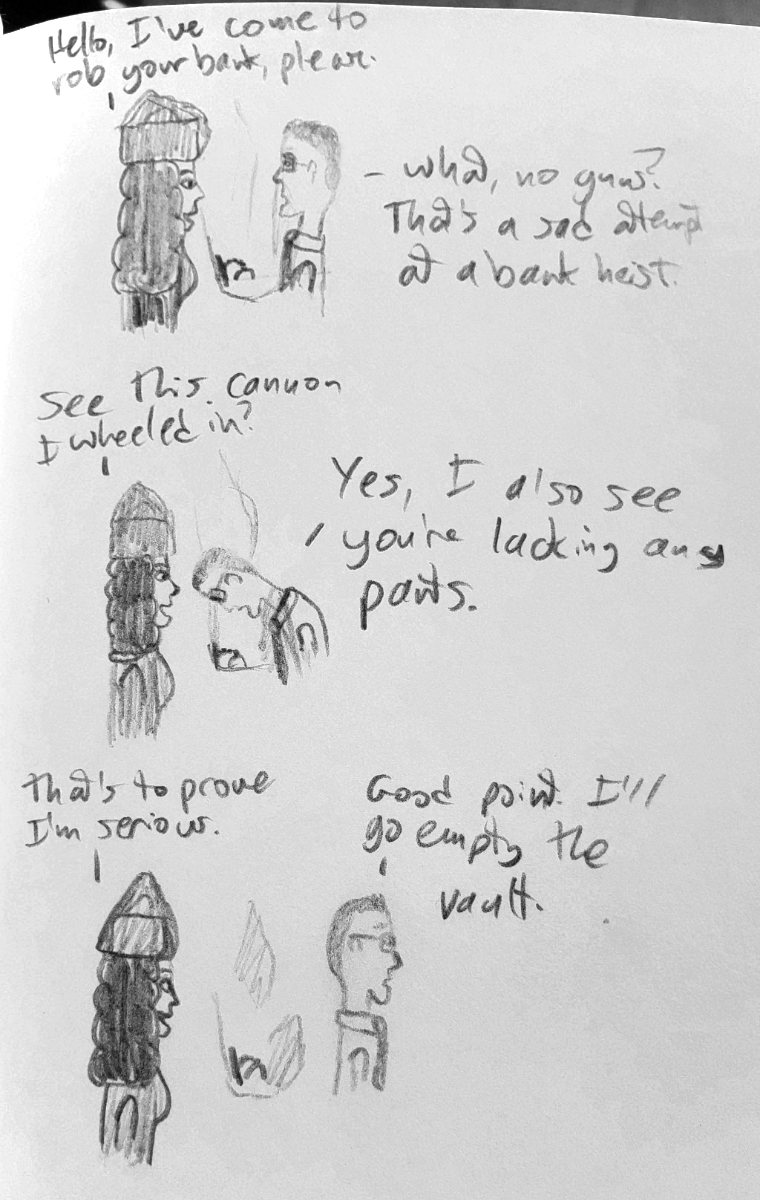 Hello, I've come to
rob your bank, please.
- what, no guns?
That's a sad attempt
at a bank heist.
See this cannon
I wheeled in?
Yes, I also see
you're lacking any
pants.
That's to prove
I'm serious.
Good point. I'll
go empty the
vault.